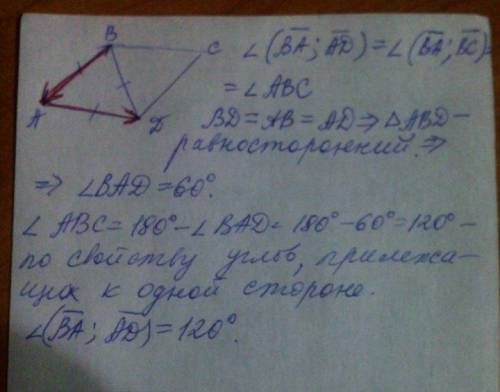 B
C
A
D
∠(B̅A̅; A̅D̅) = ∠(B̅A̅; B̅C̅) =
= ∠ABC
BD = AB = AD ⇒ △ABD –
равносторонний. ⇒
⇒ ∠BAD = 60°.
∠ABC = 180° – ∠BAD = 180° – 60° = 120° –
по свойству углов, прилежа-
щих к одной стороне.
∠(B̅A̅; A̅D̅) = 120°.